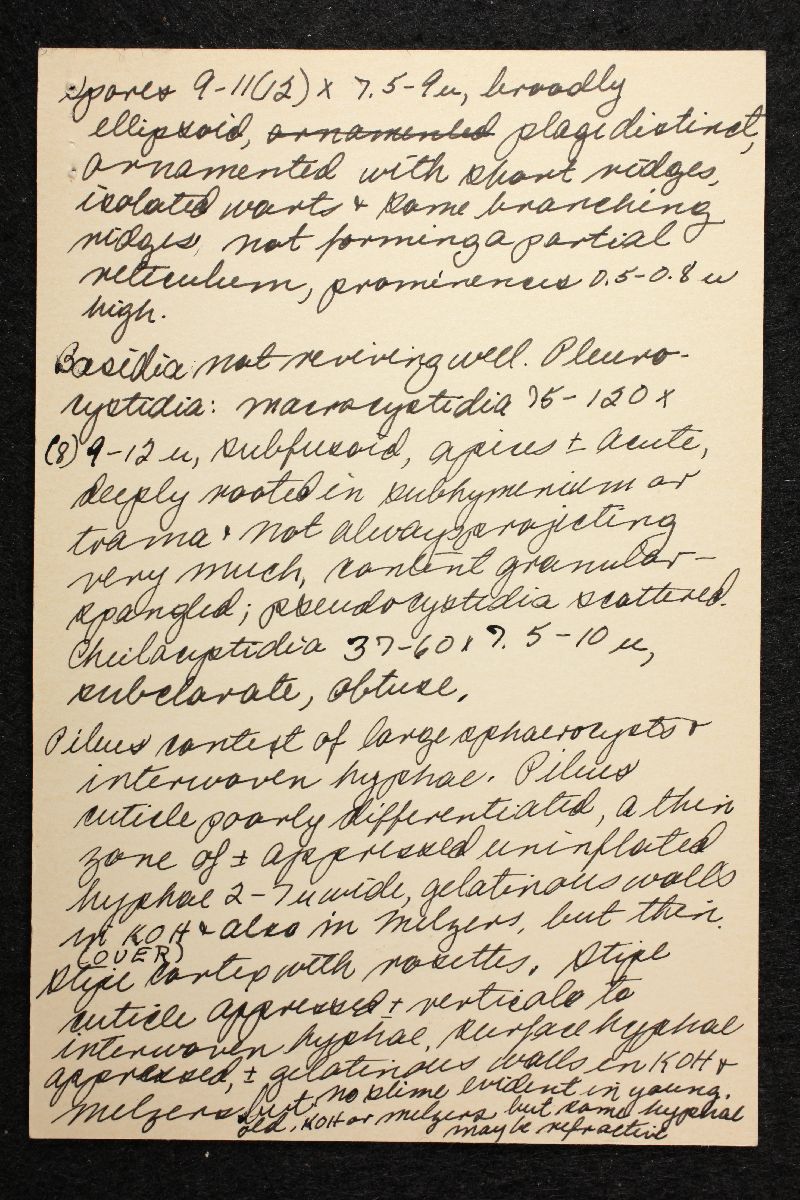 Spores 9-11(12) x 7.5-9u, broadly
ellipsoid, ornamented plage distinct,
ornamented with short ridges,
isolated warts & some branching
ridges, not forming a partial
reticulum, prominences 0.5-0.8 u
high.
Basidia not reviving well. Pleuro-
cystidia: macrocystidia 75-120 x
(8) 9-12 u, subfusoid, apices ± acute,
deeply rooted in subhymenium or
trama & not always projecting
very much, content granular-
spangled; pseudocystidia scattered.
Cheilocystidia 37-60 x 7.5-10 u,
subclavate, obtuse.
Pileus context of large sphaerocysts &
interwoven hyphae. Pileus
cuticle poorly differentiated, a thin
zone of ± appressed uninflated
hyphae 2-7 u wide, gelatinous walls
in KOH & also in Melzers, but thin.
(OVER)
Stipe cortex with rosettes. Stipe
cuticle appressed ± verticals to
interwoven hyphae. Surface hyphae
appressed, ± gelatinous walls in KOH &
Melzers but no slime evident in young.
old. KOH or Melzers but some hyphae
may be refractive